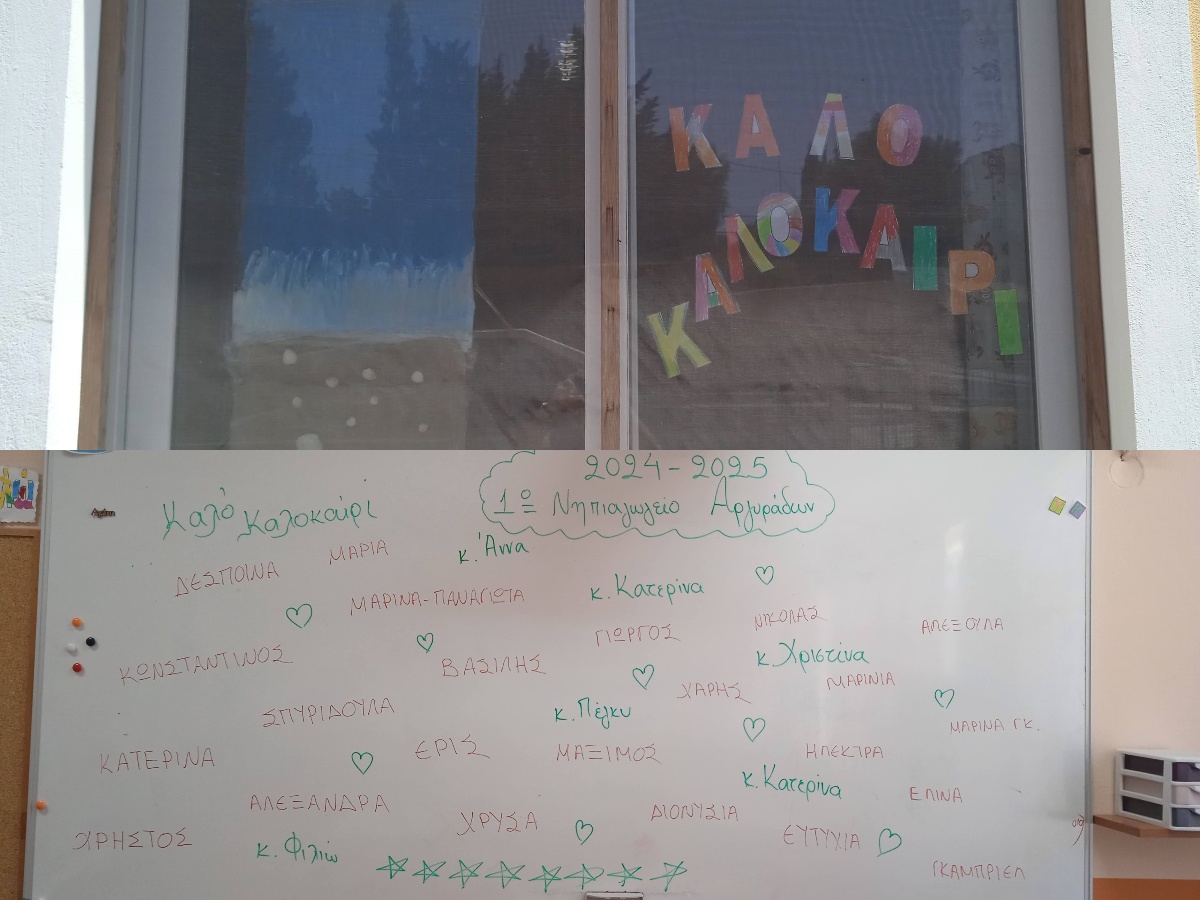 ΚΑΛΟ
ΚΑΛΟΚΑΙΡΙ
2024-2025
Καλό Καλοκαίρι
1º Νηπιαγωγείο Αργυράδων
ΔΕΣΠΟΙΝΑ ΜΑΡΙΑ κ. Άννα
ΜΑΡΙΝΑ-ΠΑΝΑΓΙΩΤΑ κ. Κατερίνα
ΓΙΩΡΓΟΣ ΝΙΚΟΛΑΣ ΑΛΕΞΟΥΛΑ
ΚΩΝΣΤΑΝΤΙΝΟΣ ΒΑΣΙΛΗΣ κ. Χριστίνα
ΧΑΡΗΣ ΜΑΡΙΝΙΑ
ΣΠΥΡΙΔΟΥΛΑ κ. Πέγκυ ΜΑΡΙΝΑ ΓΚ.
ΚΑΤΕΡΙΝΑ ΕΡΙΣ ΜΑΞΙΜΟΣ ΗΛΕΚΤΡΑ
κ. Κατερίνα ΕΛΙΝΑ
ΑΛΕΞΑΝΔΡΑ ΧΡΥΣΑ ΔΙΟΝΥΣΙΑ
ΧΡΗΣΤΟΣ κ. Φιλιώ ΕΥΤΥΧΙΑ
ΓΚΑΜΠΡΙΕΛ